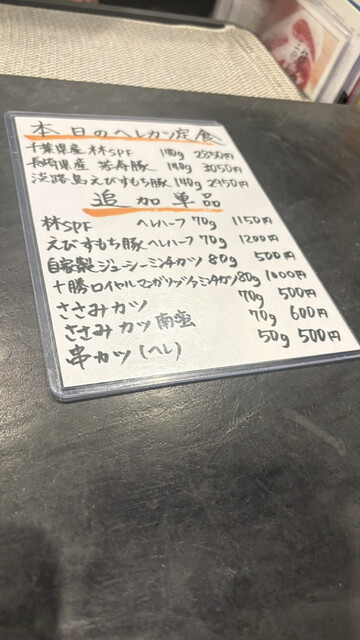 本日のヘレカツ定食
千葉県産 林SPF 140g 2850円
長崎県産 芳寿豚 140g 3050円
淡路島えびすもち豚 140g 2950円
追加単品
林SPF ヘレハーフ 70g 1150円
えびすもち豚 ヘレハーフ 70g 1200円
自家製ジューシーミンチカツ 80g 500円
十勝ロイヤルマンガリッツァミンチカツ 80g 1000円
ささみカツ 70g 500円
ささみカツ 南蛮 70g 600円
串カツ (ヘレ) 50g 500円